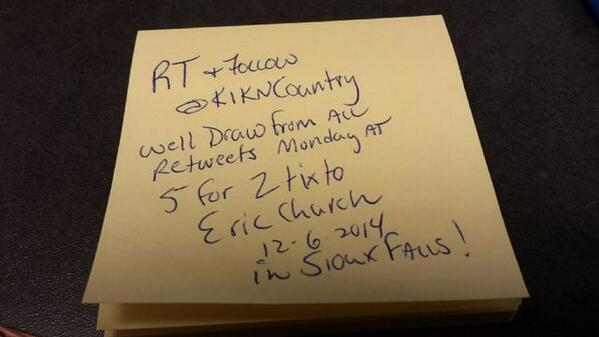 RT + Follow
@KIKNCountry
well Draw from All
Retweets Monday AT
5 for 2 tix to
Eric Church
12-6-2014
in Sioux Falls!